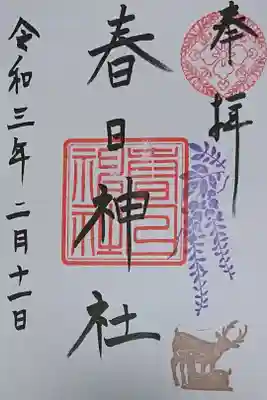 奉拝
春日神社
春日神社
令和三年二月十一日